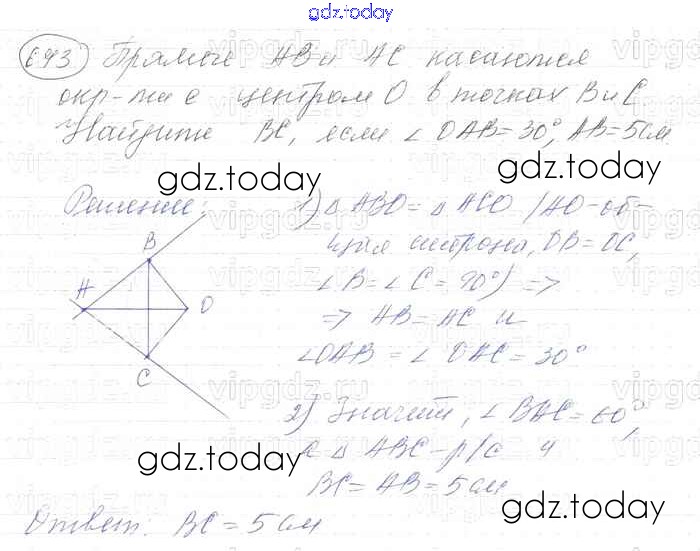 gdz.today
643 Прямые АВ и АС касаются
окр-ти с центром О в точках В и С.
Найдите ВС, если ∠ОАВ=30°, АВ=5см.
gdz.today
gdz.today
Решение:
1) △АВО=△АСО /АО-об-
щая сторона, ОВ=ОС,
∠В=∠С=90°) =>
=> АВ=АС и
∠ОАВ=∠ОАС=30°
В
А
О
С
gdz.today
2) Значит, ∠ВАС=60°,
а △АВС-р/с и
ВС=АВ=5см
gdz.today
gdz.today
Ответ: ВС=5см
vipgdz.ru